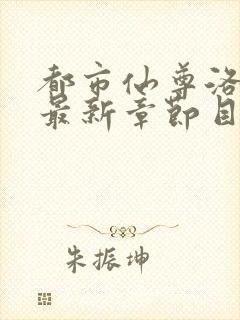 都市仙尊洛
最新章节目
朱振坤